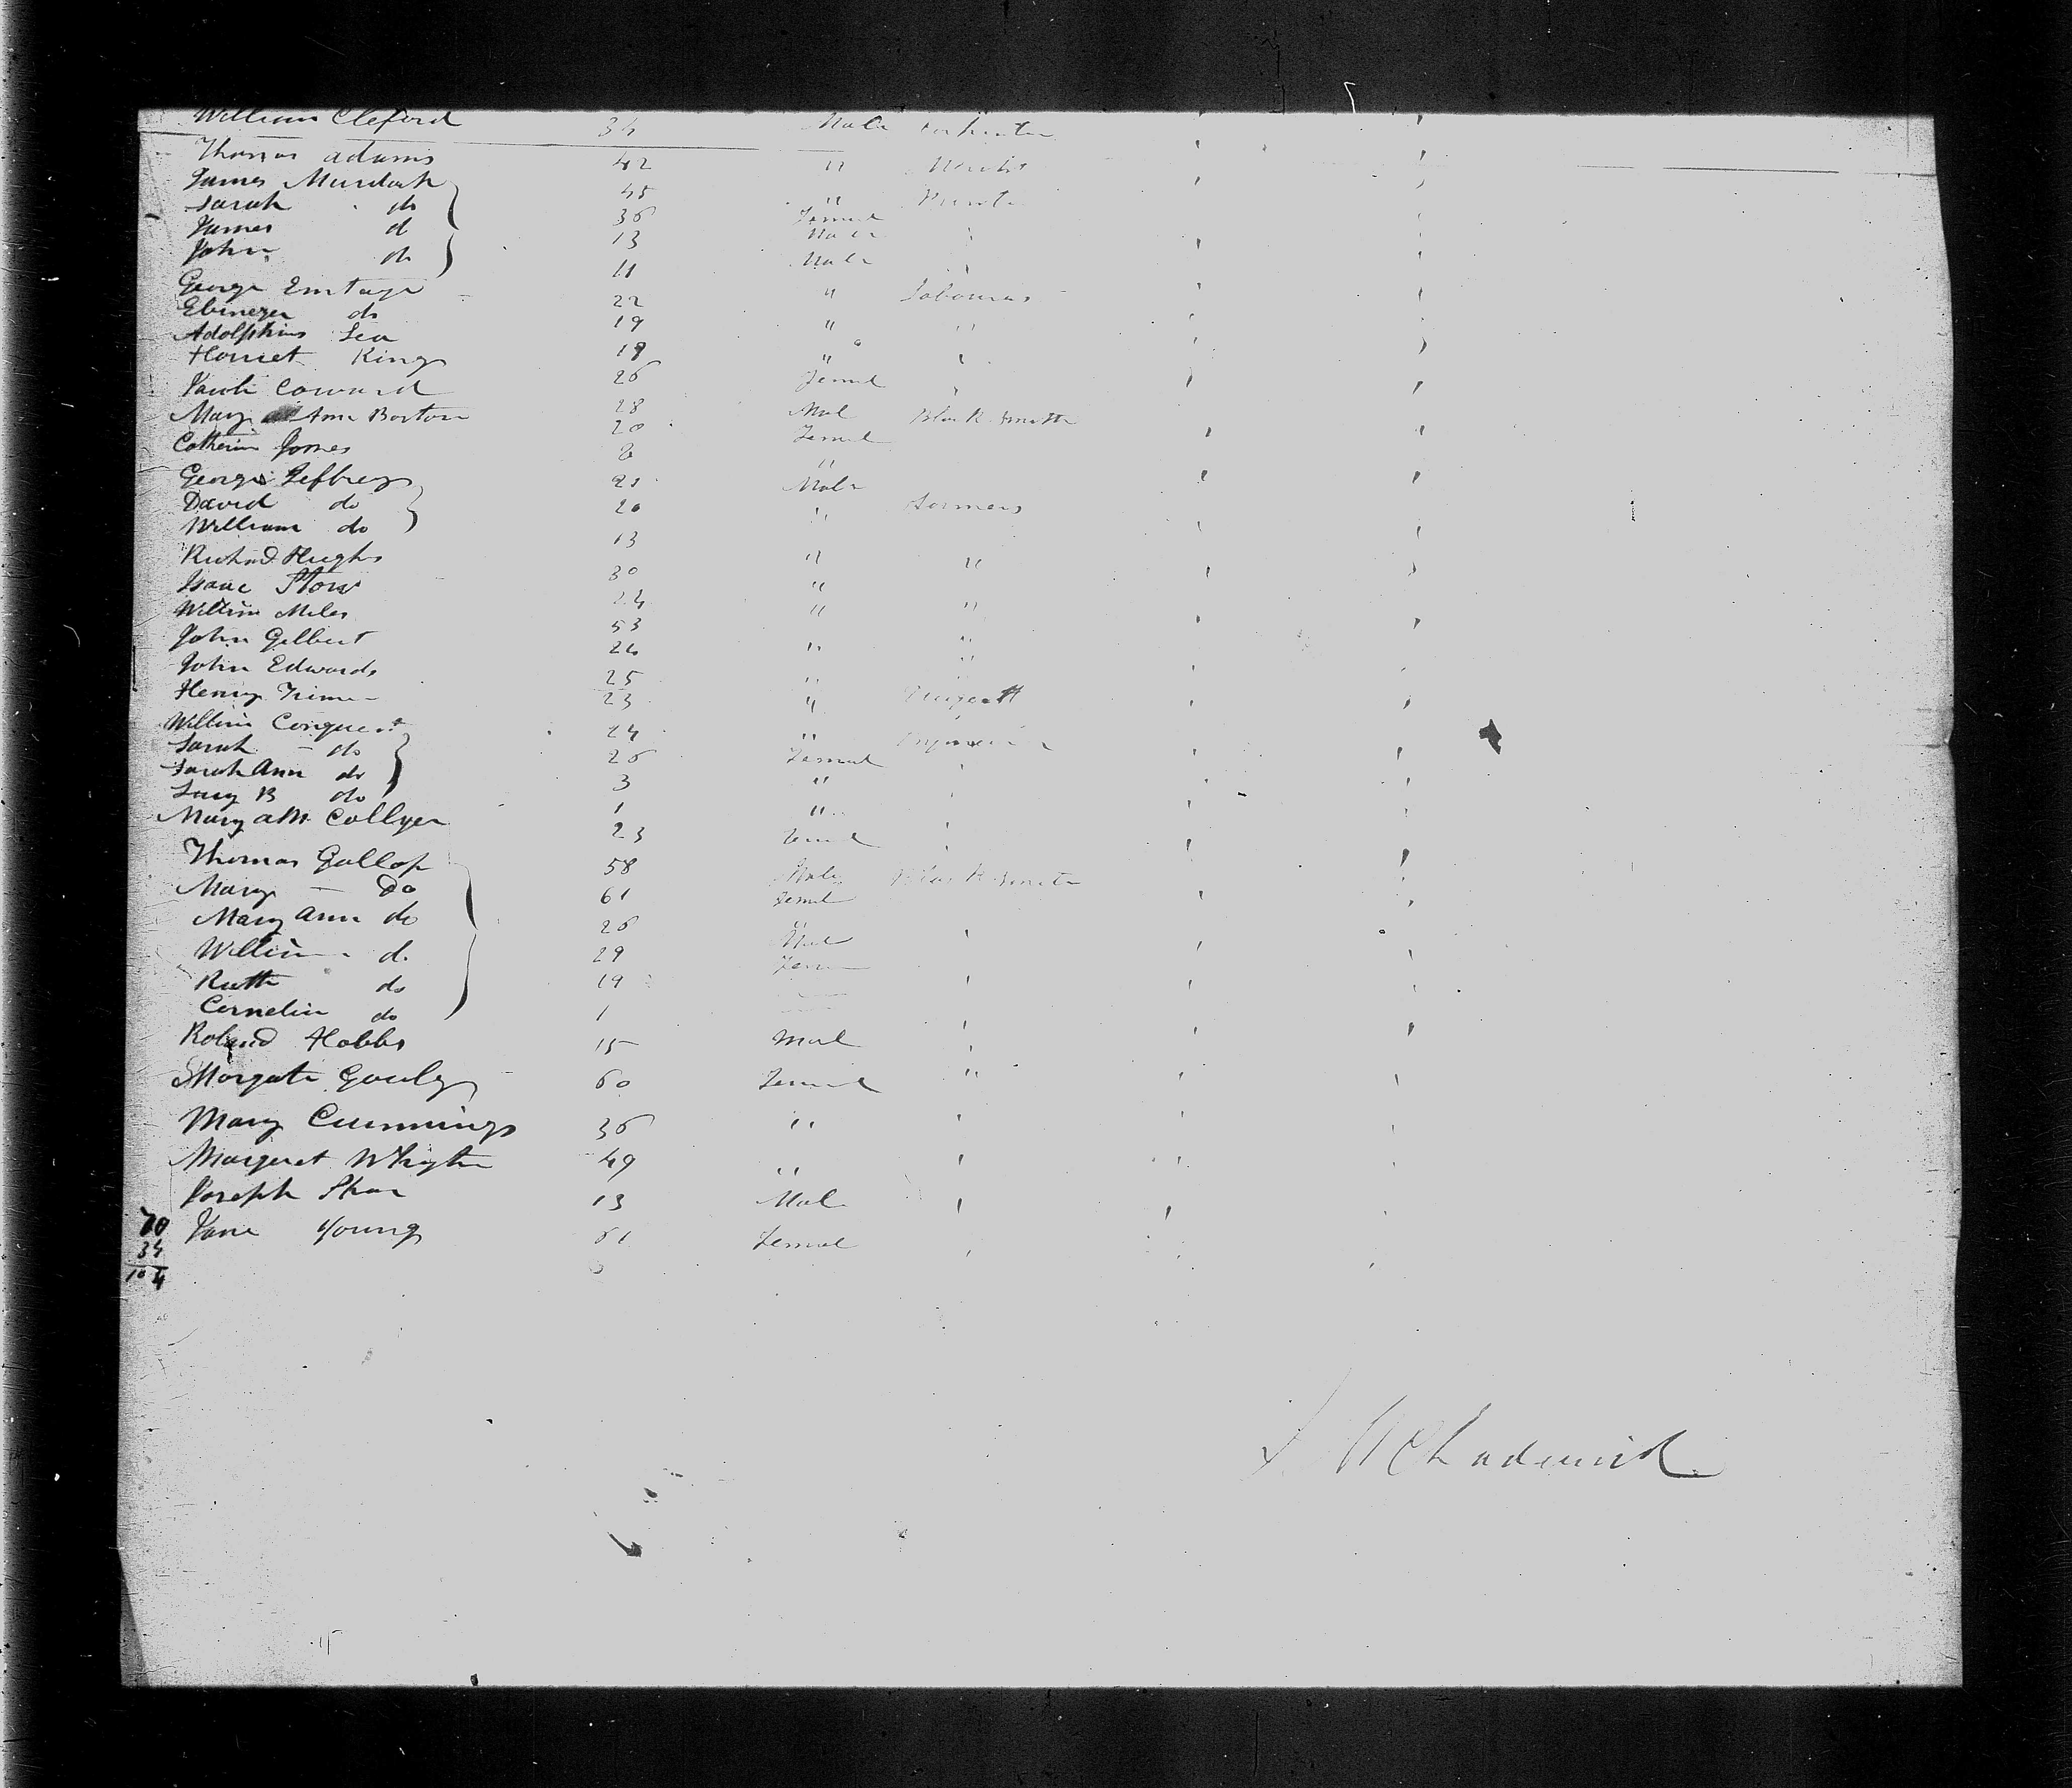 William Cleford 34 Male Carpenter
Thomas Adams 42 "
James Murdock 45 "
Sarah do 36 Femal
James d 13 Male
John do 11 Male
George Emtage 22 " Labourers
Ebinezer do 19 " "
Adolphus Lea 19 "
Harriet King 26 Femal
Jacob Coward 28 Mal Black Smith
Mary Ann Borton 20 Femal
Catherin Jones 8 "
George Jeffreys 21 Male
David do 20 " Farmers
William do 13
Richard Hughs 30 " "
Isaac Stow 24 "
William Miles 53 " "
John Gilbert 24 " "
John Edwards 25 " "
Henry 23 "
William Conquest 24 "
Sarah - do 26 Femal
Sarah Ann do 3 "
Lucy B do 1 "
Mary Collyer 23 Femal
Thomas Gallop 58 Male Black Smith
Mary - Do 61 Femal
Mary Ann do 26 "
William d. 29 Mal
Ruth do 19 Fem
Cornelia do 1
Roland Hobbs 15 Mal
Margate Gouly 60 Femal "
Mary Cummings 36 "
Margaret Whyte 49 "
Joseph Shar 13 Mal
70 Jane Young 61 Femal
34
104
Chadwick